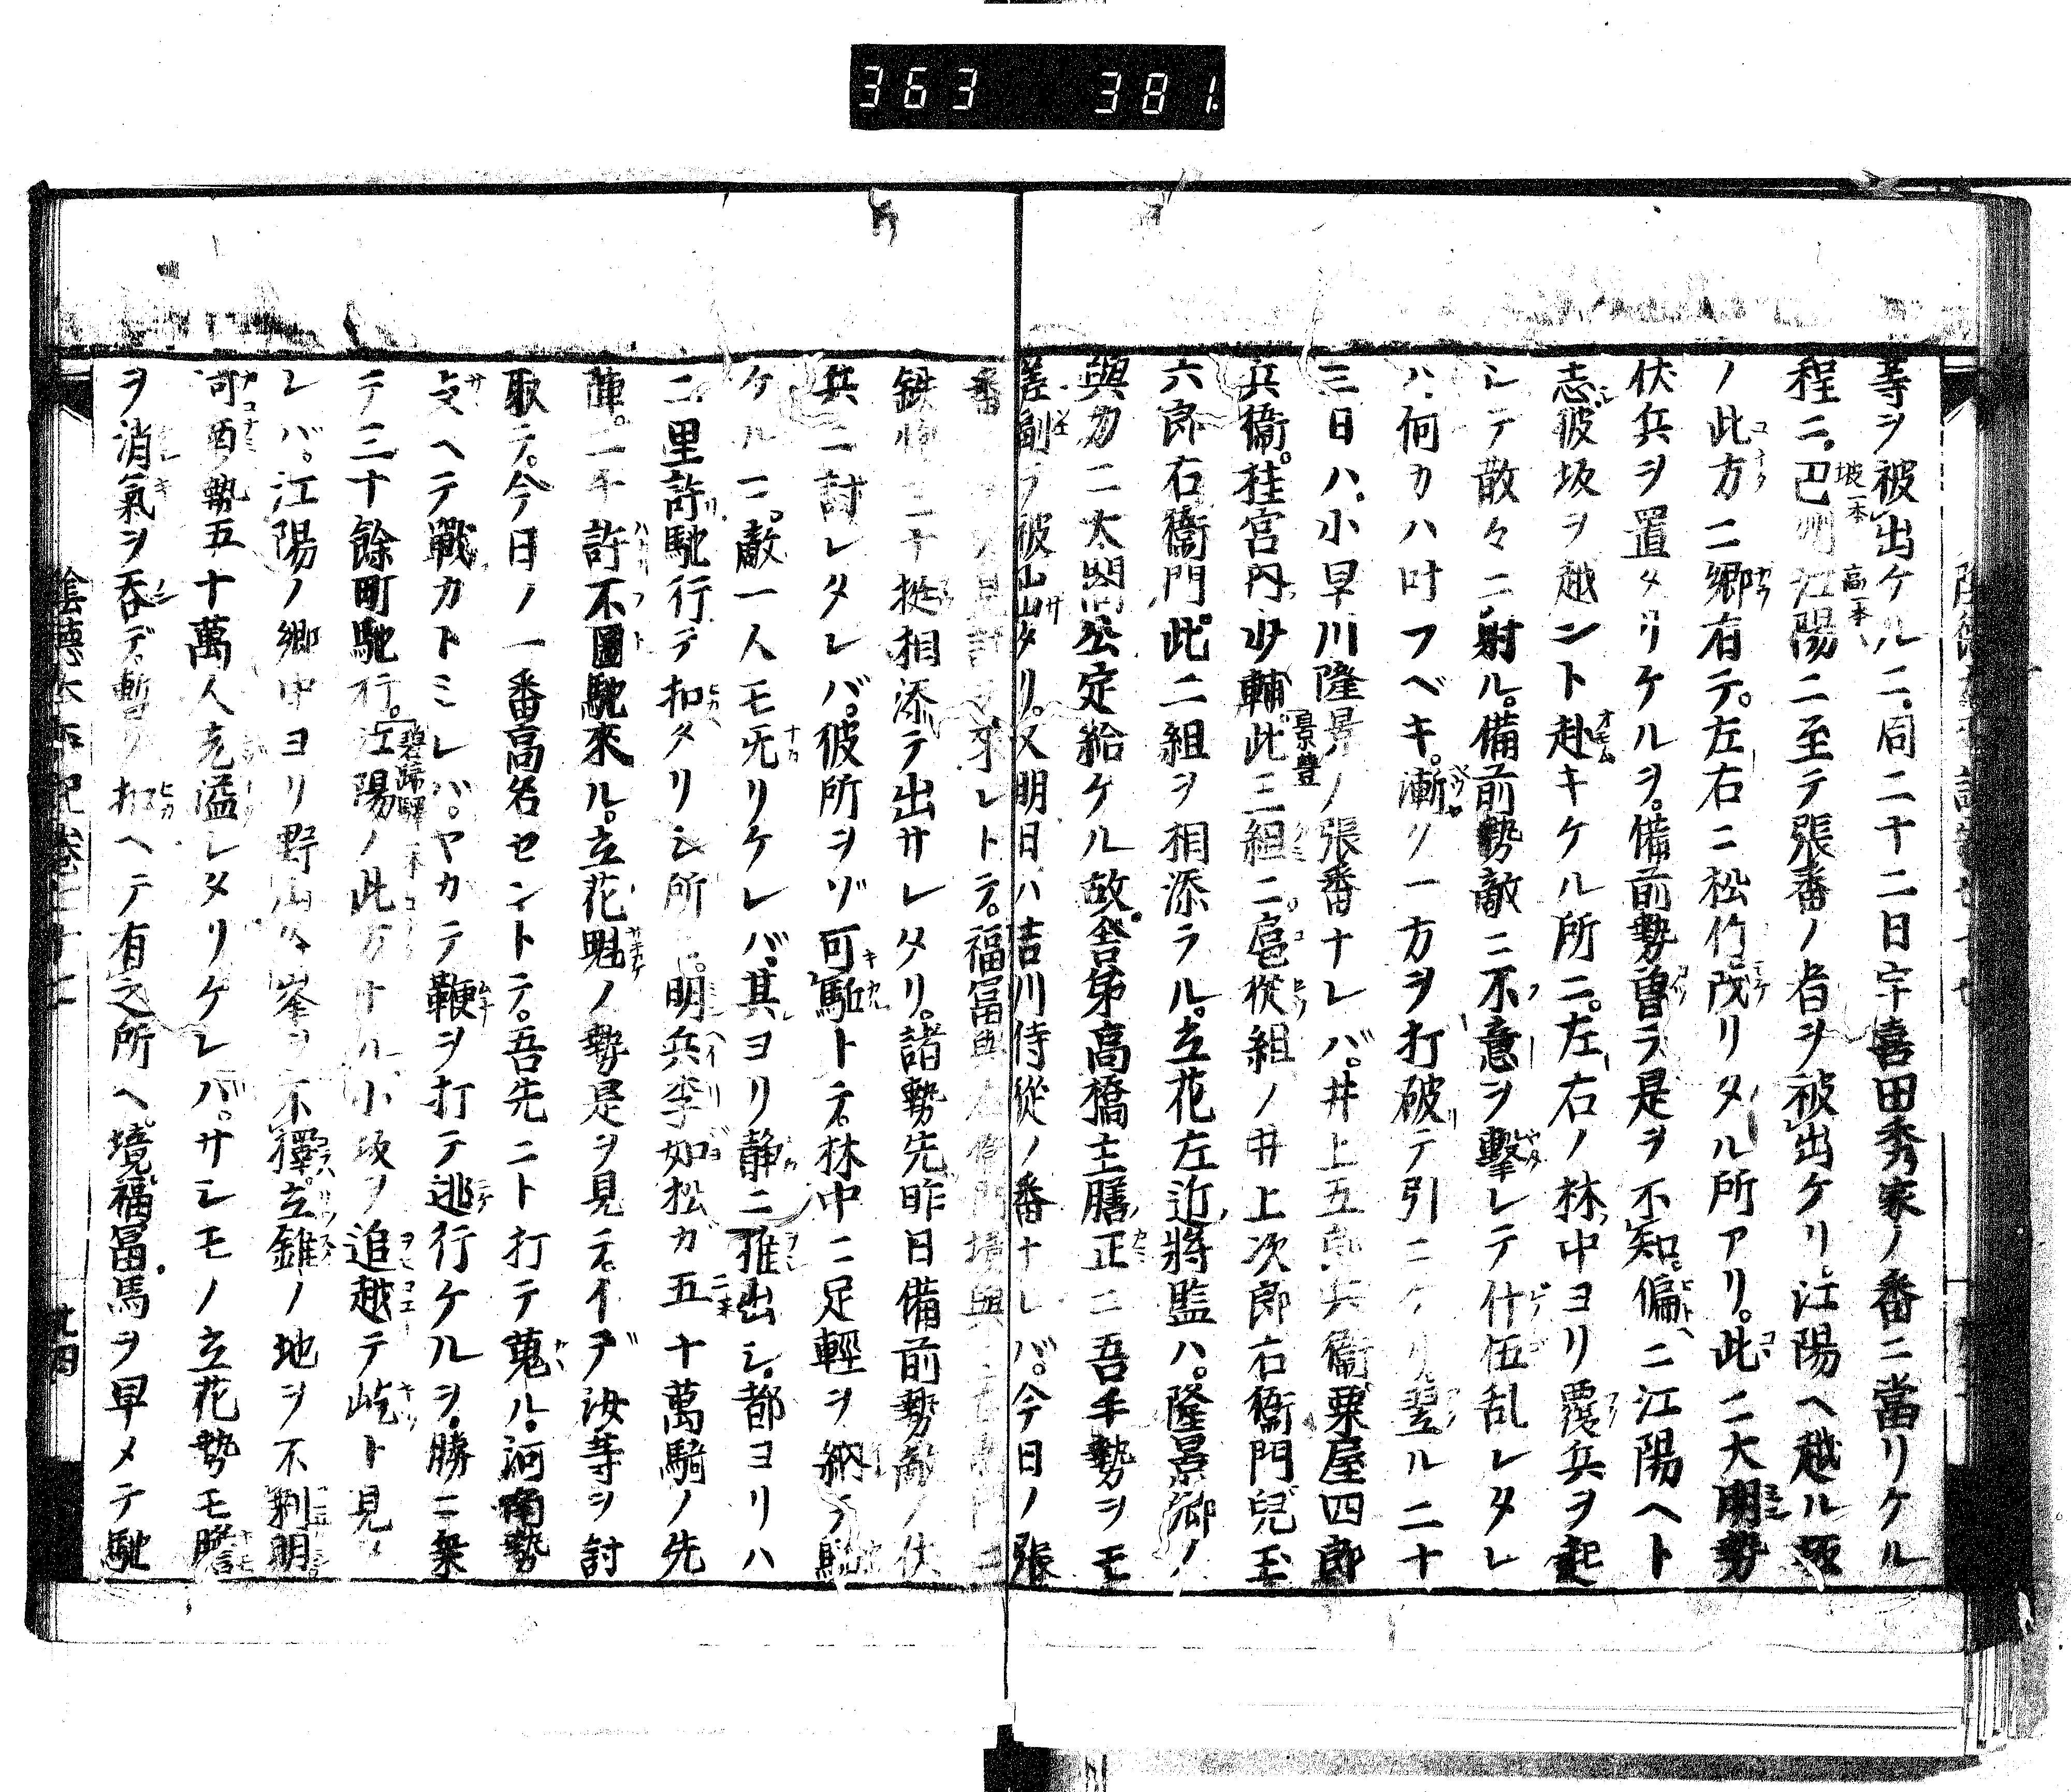 363 381
等ヲ被出ケルニ。同二十二日宇喜田秀家ノ番ニ當リケル
程ニ。巴州江陽ニ至テ張番ノ者ヲ被出ケリ。江陽ヘ越ル坂
ノ此方ニ郷有テ。左右ニ松竹茂リタル所アリ。此ニ大明勢
伏兵ヲ置タリケルヲ。備前勢曽テ是ヲ不知。偏ニ江陽ヘト
志。彼坂ヲ越ント赴キケル所ニ。左右ノ林中ヨリ覆兵ヲ起
シテ散々ニ射ル。備前勢敵ニ不意ヲ撃レテ什伍乱レタレ
ハ。何カハ叶フベキ。漸々ノ一方ヲ打破テ引ニケリ。翌ル二十
三日ハ。小早川隆景ノ張番ナレバ。井上五郎兵衞。粟屋四郎
兵衞。桂宮内少輔。此三組ニ。扈從組ノ井上次郎右衞門。兒玉
六郎右衞門。此二組ヲ相添ラル。立花左近將監ハ。隆景卿ノ
與力ニ太閤公定給ケル故。舎弟高橋主膳正ニ吾手勢ヲモ
差副テ被出タリ。又明日ハ吉川侍從ノ番ナレバ。今日ノ張
番 見計 來レトテ。福冨與右衞門。境與 ニ
鉄炮二十挺相添テ出サレタリ。諸勢先昨日備前勢敵ノ伏
兵ニ討レタレバ。彼所ヲゾ可駈トテ。林中ニ足輕ヲ納テ駈
ケルニ。敵一人モ旡リケレバ。其ヨリ静ニ推出シ。都ヨリハ
二里許馳行テ扣タリシ所ニ。明兵李如松ガ五十萬騎ノ先
陣。二千許不圖馳來ル。立花魁ノ勢是ヲ見テ。イデ汝等ヲ討
取テ。今日ノ一番高名セントテ。吾先ニト打テ蒐ル。河南勢
支ヘテ戰カトミレバ。ヤカテ鞭ヲ打テ逃行ケルヲ。勝ニ乗
テ三十餘町馳行。江陽ノ此方ナル小坂ヲ追越テ屹ト見
レバ。江陽ノ郷中ヨリ野山々峯ヲ不擇。立錐ノ地ヲ不剰明
河西勢五十萬人充溢レタリケレバ。サシモノ立花勢モ膽
ヲ消氣ヲ呑デ。暫ク扣ヘテ有之所ヘ。境福冨馬ヲ早メテ馳
陰德太平記卷七十七
廿四